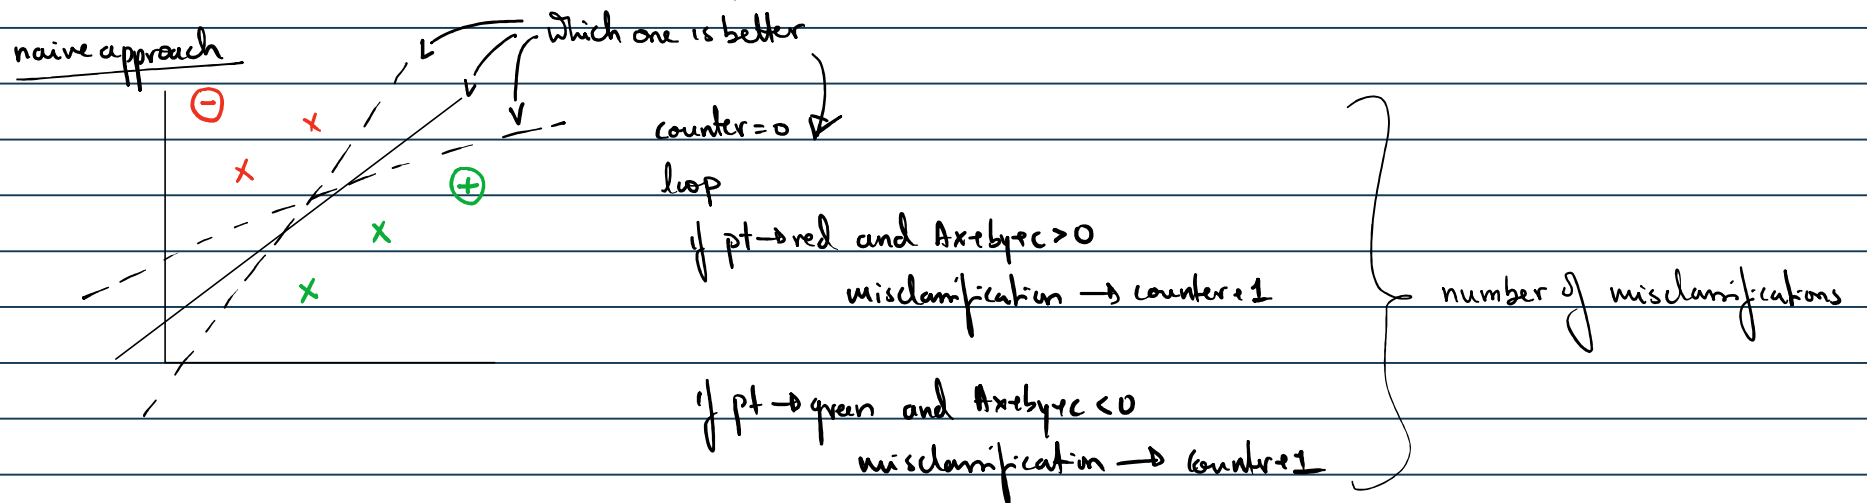 naive approach
which one is better
⊖
⊕
counter = 0
loop
if pt → red and Ax+by+c > 0
misclassification → counter+1
if pt → green and Ax+by+c < 0
misclassification → counter+1
number of misclassifications